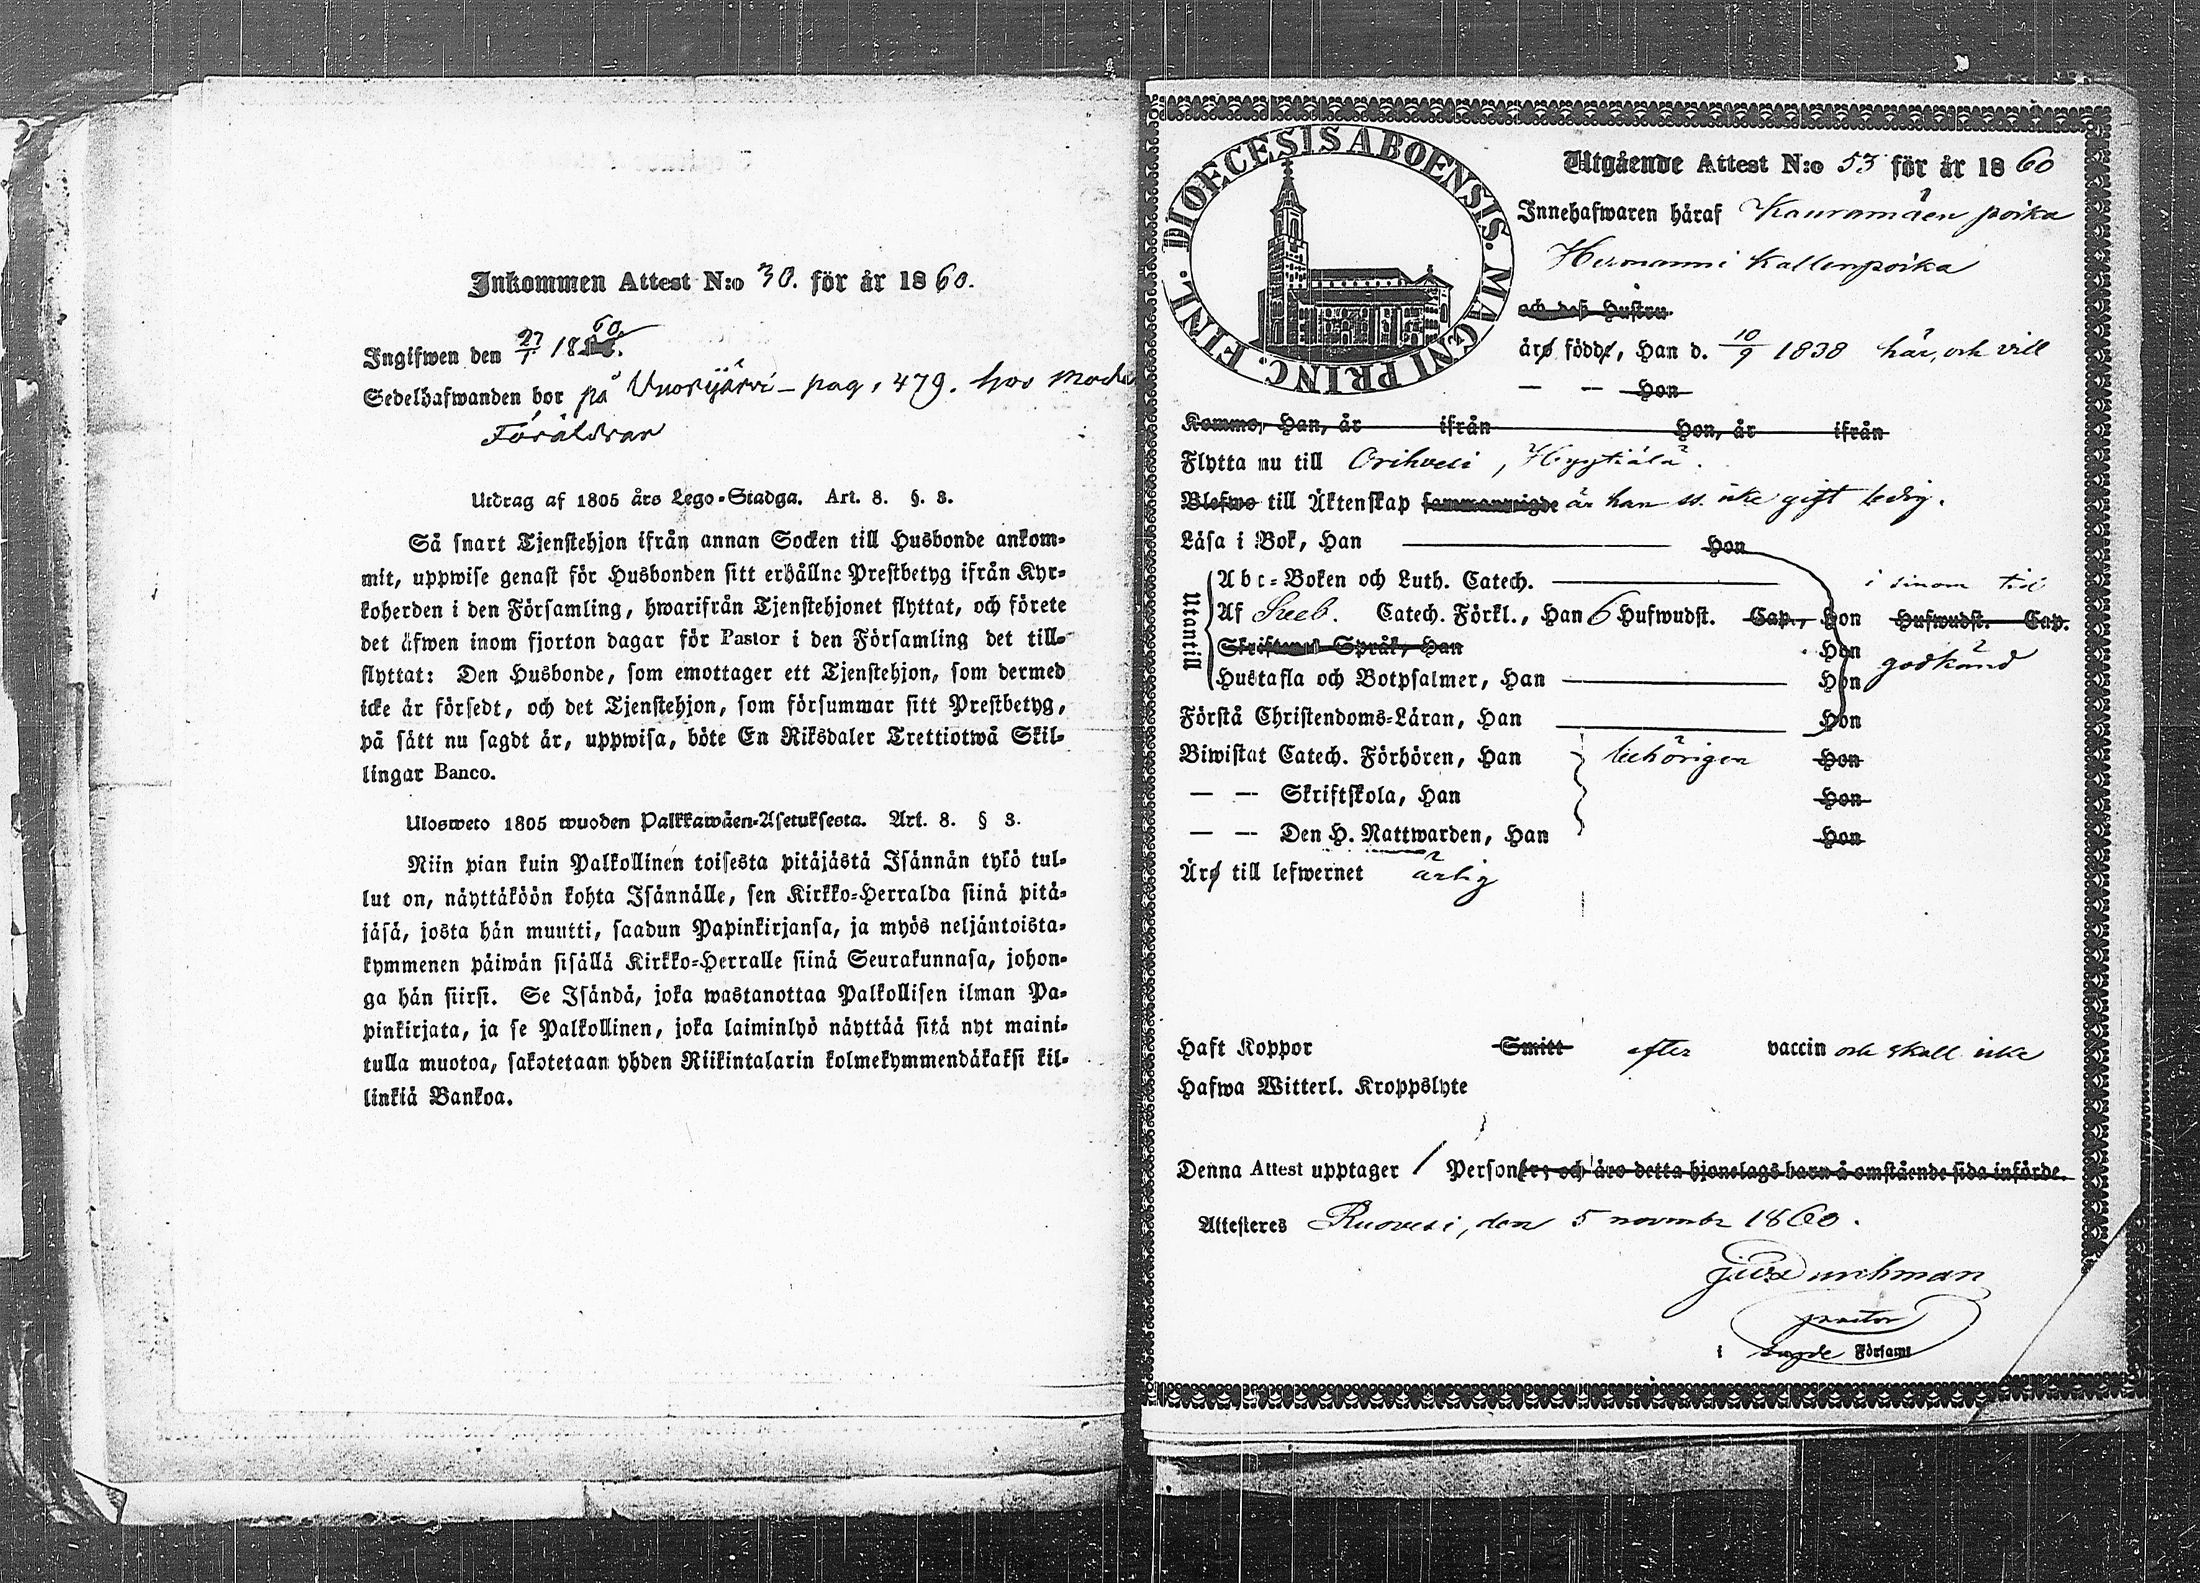 Inkommen Attest N:o 30. för år 1860.
Ingifwen den 27/1 1860.
Sedelhafwanden bor på Vuorijärvi - pag, 479. hos
Föräldrar
Utdrag af 1805 års Lego-Stadga. Art. 8. §. 3.
Så snart Tjenstehjon ifrån annan Socken till Husbonde ankom-
mit, uppwise genast för Husbonden sitt erhållne Prestbetyg ifrån Kyr-
koherden i den Församling, hwarifrån Tjenstehjonet flyttat, och förete
det äfwen inom fjorton dagar för Pastor i den Församling det till-
flyttat: Den Husbonde, som emottager ett Tjenstehjon, som dermed
icke är försedt, och det Tjenstehjon, som försummar sitt Prestbetyg,
på sätt nu sagdt är, uppwisa, böte En Riksdaler Trettiotwå Skil-
lingar Banco.
Ulosweto 1805 wuoden Palkkawäen-Asetuksesta. Art. 8. § 3.
Niin pian kuin Palkollinen toisesta pitäjästä Isännän tykö tul-
lut on, näyttäköön kohta Isännälle, sen Kirkko-Herralda siinä pitä-
jäsä, josta hän muutti, saadun Papinkirjansa, ja myös neljäntoista-
kymmenen päiwän sisällä Kirkko-Herralle siinä Seurakunnasa, johon-
ga hän siirsi. Se Isändä, joka wastanottaa Palkollisen ilman Pa-
pinkirjata, ja se Palkollinen, joka laiminlyö näyttää sitä nyt maini-
tulla muotoa, sakotetaan yhden Riikintalarin kolmekymmendäkaksi kil-
linkiä Bankoa.
DIOECESIS ABOENSIS. MAGNI PRINC. FINL.
Utgående Attest N:o 53 för år 1860
Innehafwaren häraf Kauramäen poika
Hermanni Kallenpoika
och dess Hustru
äro födde, Han d. 10/9 1838 här, och vill
— — Hon
Komme, Han, år ifrån Hon, år ifrån
Flytta nu till Orihvesi, Hyytiälä.
Blefwo till Äktenskap sammanwigde är han icke gift ledig.
Läsa i Bok, Han Hon
Utantill
Abc-Boken och Luth. Catech. i sinom tid
Af Sveb. Catech. Förkl., Han 6 Hufwudst. Cap., Hon Hufwudst. Cap.
Skriftenes Språk, Han Hon
Hustafla och Botpsalmer, Han Hon godkänd
Förstå Christendoms-Läran, Han Hon
Biwistat Catech. Förhören, Han behörigen Hon
— — Skriftskola, Han Hon
— — Den H. Nattwarden, Han Hon
Äro till lefwernet ärlig
Haft Koppor Smitt efter vaccin och skall icke
Hafwa Witterl. Kroppslyte
Denna Attest upptager 1 Personer; och äro detta hjonelags barn å omstående sida införde.
Attesteres Ruovesi, den 5 novembr 1860.
pastor
i sagde Församl